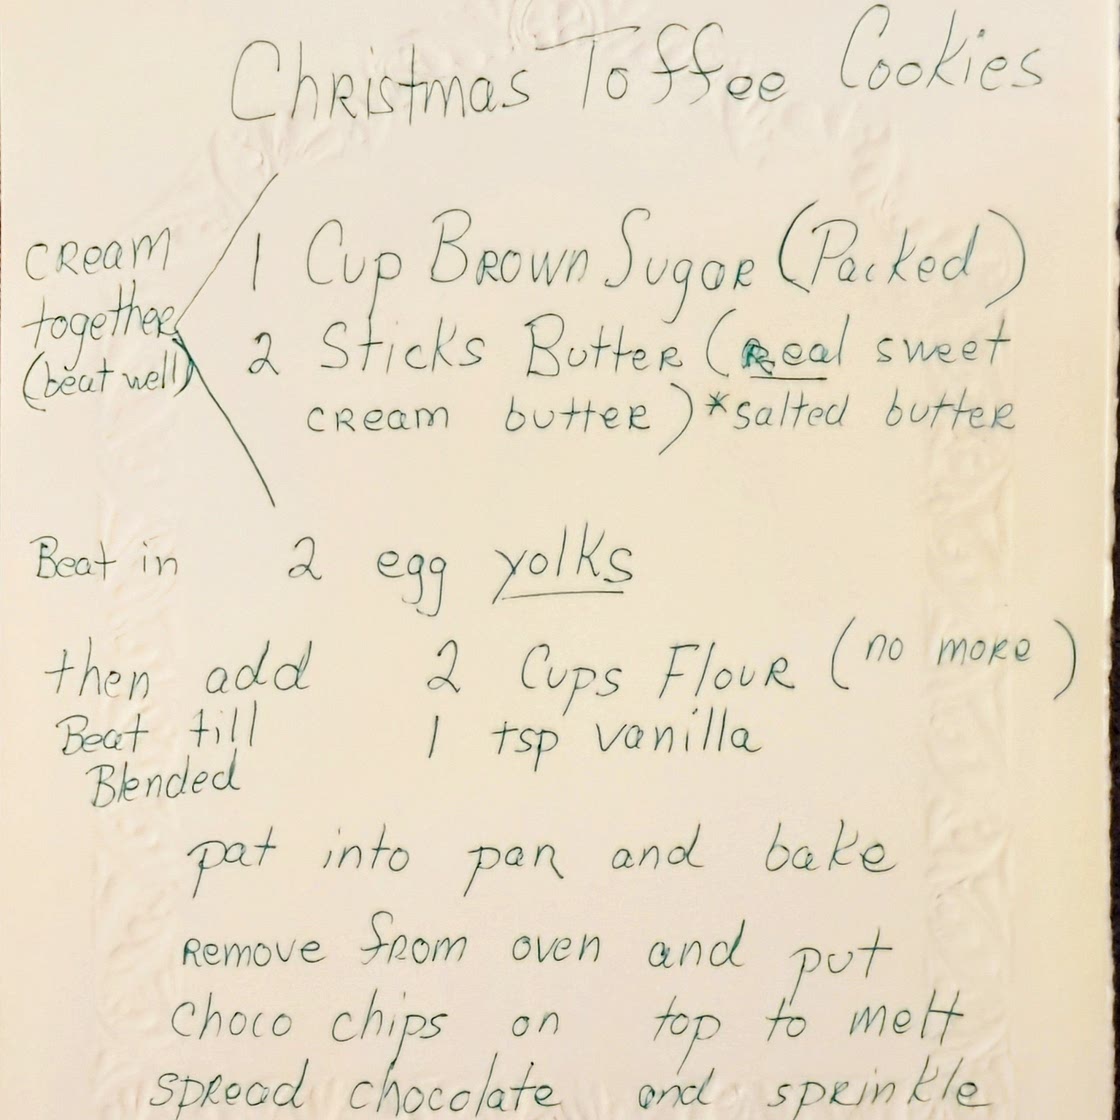 Christmas Toffee Cookies
cream together (beat well)
1 Cup Brown Sugar (Packed)
2 Sticks Butter (Real sweet
cream butter) *salted butter
Beat in 2 egg yolks
then add 2 Cups Flour (no more)
Beat till 1 tsp vanilla
Blended
pat into pan and bake
Remove from oven and put
choco chips on top to melt
spread chocolate and sprinkle